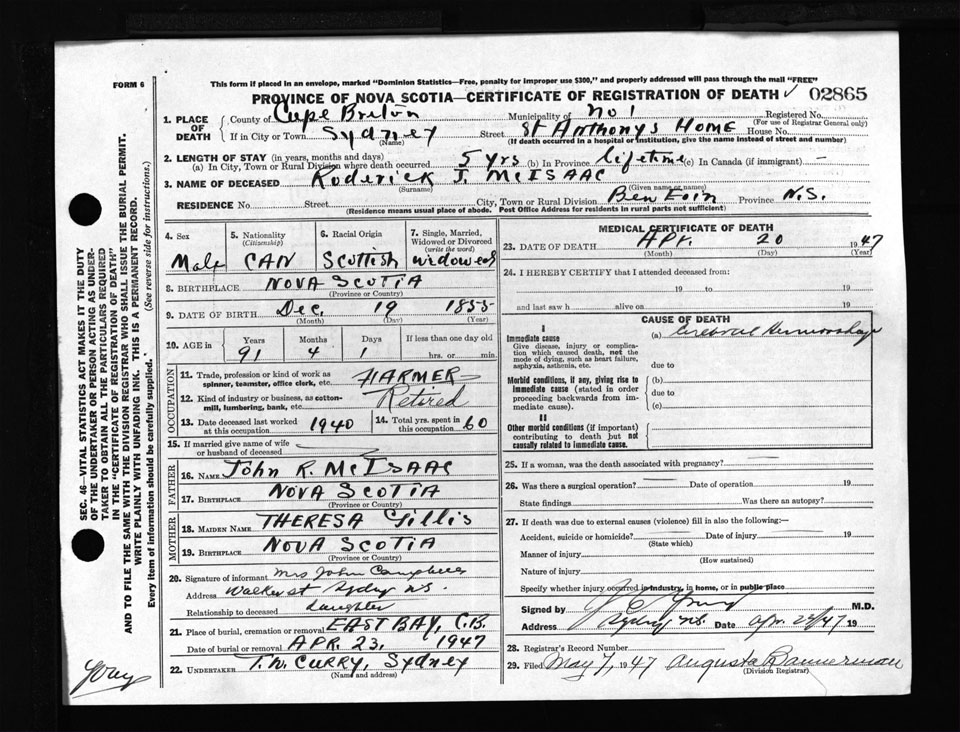 This form if placed in an envelope, marked "Dominion Statistics—Free, penalty for improper use $300," and properly addressed will pass through the mail "FREE"
FORM 6
PROVINCE OF NOVA SCOTIA—CERTIFICATE OF REGISTRATION OF DEATH ✓ 02865
1. PLACE OF DEATH
County of Cape Breton Municipality of No 1 Registered No.
(For use of Registrar General only)
If in City or Town Sydney Street St Anthonys Home House No.
(Name) (If death occurred in a hospital or institution, give the name instead of street and number)
2. LENGTH OF STAY (in years, months and days)
(a) In City, Town or Rural Division where death occurred 5 yrs (b) In Province lifetime (c) In Canada (if immigrant) —
3. NAME OF DECEASED Roderick J. McISAAC
(Surname) (Given name or names)
RESIDENCE No. Street City, Town or Rural Division Ben Eoin Province N.S.
(Residence means usual place of abode. Post Office Address for residents in rural parts not sufficient)
4. Sex Male
5. Nationality (Citizenship) CAN
6. Racial Origin Scottish
7. Single, Married, Widowed or Divorced (write the word) widowed
8. BIRTHPLACE NOVA SCOTIA
(Province or Country)
9. DATE OF BIRTH Dec. 19 1855
(Month) (Day) (Year)
10. AGE in Years Months Days If less than one day old
91 4 1 hrs. or min.
OCCUPATION
11. Trade, profession or kind of work as spinner, teamster, office clerk, etc. FARMER
12. Kind of industry or business, as cotton-mill, lumbering, bank, etc. Retired
13. Date deceased last worked at this occupation 1940
14. Total yrs. spent in this occupation 60
15. If married give name of wife or husband of deceased
FATHER
16. Name John R. McISAAC
17. Birthplace NOVA SCOTIA
(Province or Country)
MOTHER
18. Maiden Name THERESA Gillis
19. Birthplace NOVA SCOTIA
(Province or Country)
20. Signature of informant Mrs John Campbell
Address Walker st Sydney N.S.
Relationship to deceased daughter
21. Place of burial, cremation or removal EAST BAY, C.B.
Date of burial or removal APR. 23, 1947
22. UNDERTAKER T.W. CURRY, Sydney
(Name and address)
MEDICAL CERTIFICATE OF DEATH
23. DATE OF DEATH Apr. 20 1947
(Month) (Day) (Year)
24. I HEREBY CERTIFY that I attended deceased from:
19 to 19
and last saw h alive on 19
CAUSE OF DEATH
I
Immediate cause
Give disease, injury or complication which caused death, not the mode of dying, such as heart failure, asphyxia, asthenia, etc.
(a) Cerebral Hemorrhage
due to
Morbid conditions, if any, giving rise to immediate cause (stated in order proceeding backwards from immediate cause).
(b)
due to
(c)
II
Other morbid conditions (if important) contributing to death but not causally related to immediate cause.
25. If a woman, was the death associated with pregnancy?
26. Was there a surgical operation? Date of operation 19
State findings Was there an autopsy?
27. If death was due to external causes (violence) fill in also the following:
Accident, suicide or homicide? Date of injury 19
(State which)
Manner of injury
(How sustained)
Nature of injury
Specify whether injury occurred in industry, in home, or in public place
Signed by M.D.
Address Sydney, N.S. Date Apr. 47 19
28. Registrar's Record Number
29. Filed May 7, 1947 Augusta Bannerman
(Division Registrar)
SEC. 46—VITAL STATISTICS ACT MAKES IT THE DUTY
OF THE UNDERTAKER OR PERSON ACTING AS UNDER-
TAKER TO OBTAIN ALL THE PARTICULARS REQUIRED
IN THE "CERTIFICATE OF REGISTRATION OF DEATH"
AND TO FILE THE SAME WITH THE DIVISION REGISTRAR WHO SHALL ISSUE THE BURIAL PERMIT.
WRITE PLAINLY WITH UNFADING INK. THIS IS A PERMANENT RECORD.
Every item of information should be carefully supplied. (See reverse side for instructions.)